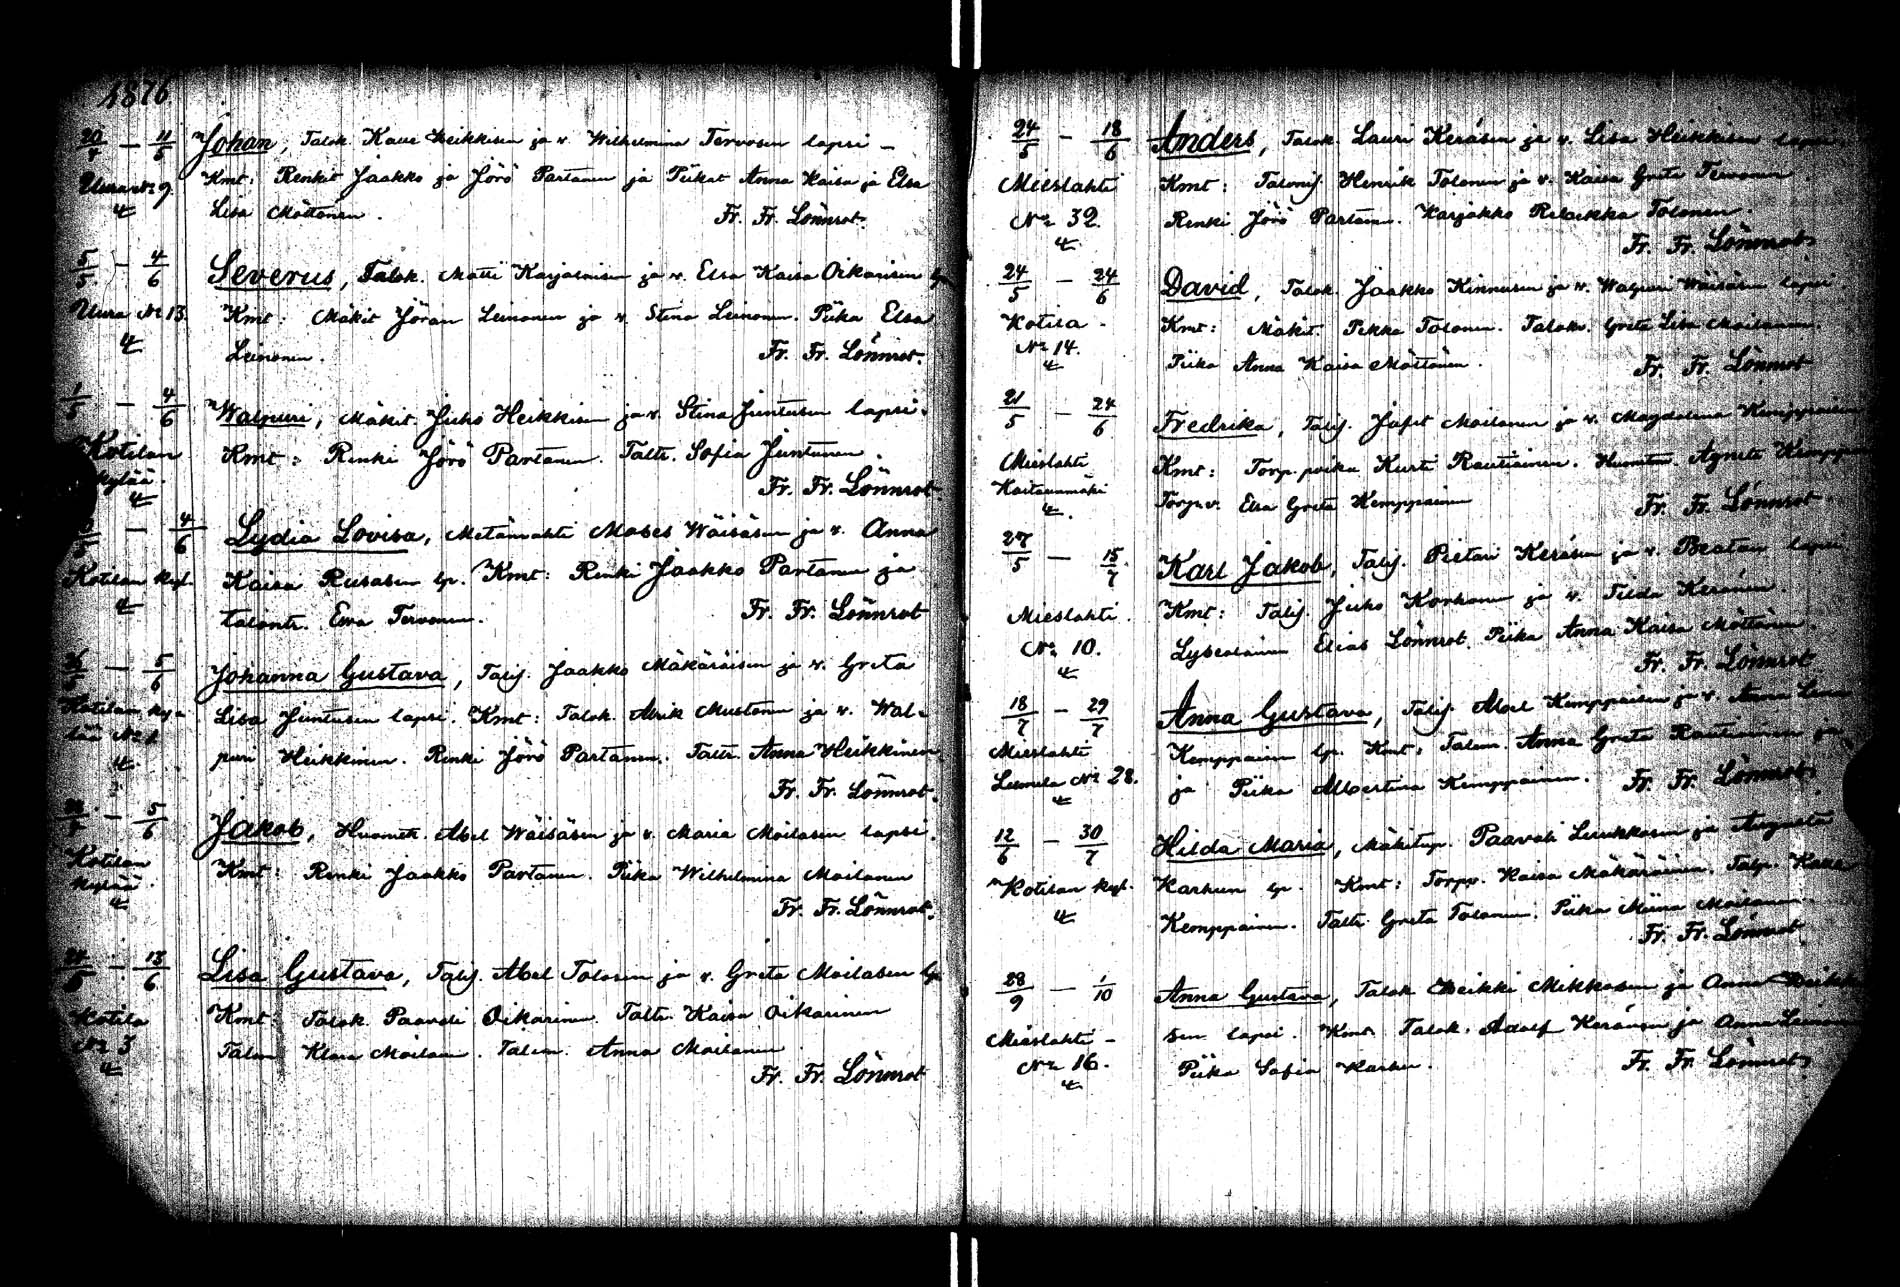 1876
20/4 — 11/5 Johan, Talok. Kalle Heikkisen ja v. Wilhelmina Tervosen lapsi —
Uura № 9. Kmt: Renkit Jaakko ja Jörö Partanen ja Piikat Anna Kaisa ja Elsa
4 Lisa Möttönen. Fr. Fr. Lönnrot.
5/5 — 4/6 Severus, Talok. Matti Karjalaisen ja v. Elsa Kaisa Oikarisen lps
Uura № 13. Kmt: Mäkit Jöran Leinonen ja v. Stina Leinonen. Piika Elsa
4 Leinonen. Fr. Fr. Lönnrot.
1/5 — 4/6 Walpuri, Mäkit. Juho Heikkisen ja v. Stina Juntusen lapsi.
Kotilan Kmt: Renki Jörö Partanen. Taltr. Sofia Juntunen.
kylää. Fr. Fr. Lönnrot.
4
— 4/6 Lydia Lovisa, Metänvahti Moses Wäisäsen ja v. Anna
Kotilan kyl. Kaisa Rusasen lp. Kmt: Renki Jaakko Partanen ja
4 talontr. Ewa Tervonen. Fr. Fr. Lönnrot
— 5/6 Johanna Gustava, Talij. Jaakko Mäkäräisen ja v. Greta
Kotilan ky- Lisa Juntusen lapsi. Kmt: Talok. Abrik Mustonen ja v. Wal-
lää № 1. puri Heikkinen. Renki Jörö Partanen. Taltr. Anna Heikkinen.
4 Fr. Fr. Lönnrot.
— 5/6 Jakob, Huonem. Abel Wäisäsen ja v. Maria Moilasen lapsi.
Kotilan Kmt: Renki Jaakko Partanen. Piika Wilhelmina Moilanen
kylää. Fr. Fr. Lönnrot.
4
24/5 — 18/6 Lisa Gustava, Talij. Abel Tolosen ja v. Greta Moilasen lps
Kotila Kmt: Talok. Paavali Oikarinen. Taltr. Kaisa Oikarinen
№ 3 Talem. Klara Moilanen. Talem. Anna Moilanen.
4 Fr. Fr. Lönnrot
24/5 — 18/6 Anders, Talok. Lauri Keräsen ja v. Lisa Heikkisen lapsi.
Mieslahti Kmt: Talonij. Henrik Tolonen ja v. Kaisa Greta Tervonen.
№ 32. Renki Jörö Partanen. Karjakko Rebekka Tolonen.
4 Fr. Fr. Lönnrot
24/5 — 24/6 David, Talok. Jaakko Kinnusen ja v. Walpuri Wäisäsen lapsi.
Kotila. Kmt: Mäkit. Pekka Tolonen. Talokv. Greta Lisa Moilanen.
№ 14. Piika Anna Kaisa Möttönen. Fr. Fr. Lönnrot
4
21/5 — 24/6 Fredrika, Talij. Jafet Moilanen ja v. Magdalena Kemppaisen
Mieslahti Kmt: Torp. poika Kurti Rautiainen. Agneta Kemppai
4. Torp.v. Elsa Greta Kemppainen Fr. Fr. Lönnrot.
27/5 — 15/7 Karl Jakob, Talij. Pietari Keräsen ja v. Beatan lapsi.
Mieslahti. Kmt: Talij. Juho Korhonen ja v. Tilda Keränen.
№ 10. Lyseolainen Elias Lönnrot. Piika Anna Kaisa Möttönen.
4 Fr. Fr. Lönnrot
18/7 — 29/7 Anna Gustava, Talij. Abel Kemppaisen ja v. Anna
Mieslahti Kemppaisen lp. Kmt: Talem. Anna Greta Rautiainen ja
№ 28. ja Piika Albertina Kemppainen. Fr. Fr. Lönnrot
4
12/6 — 30/7 Hilda Maria, Mäkitup. Paavali Leinkkosen ja Augusta
Kotilan kyl. Karhun lp. Kmt: Torpp. Kaisa Mäkäräinen. Talp. Kalle
4 Kemppainen. Taltr. Greta Tolonen. Piika Miina Moilanen.
Fr. Fr. Lönnrot.
28/9 — 1/10 Anna Gustava, Talok. Heikki Mikkosen ja Anna Heikki
Mieslahti — sen lapsi. Kmt. Talok. Adolf Keränen ja Anna Leinonen
№ 16. Piika Sofia Karhu. Fr. Fr. Lönnrot
4